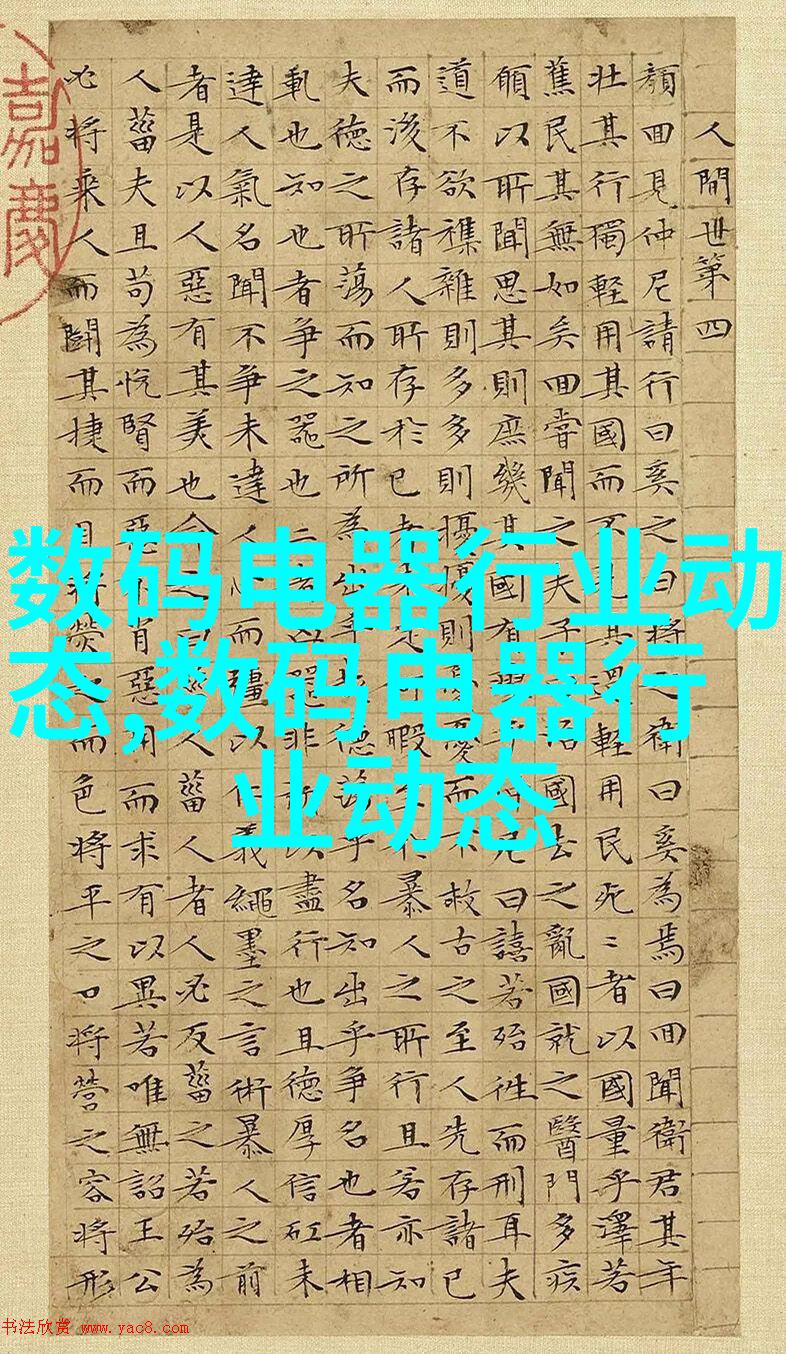 人間世第四
顏回見仲尼請行曰奚之曰將之衛曰奚為焉曰回聞衛君其年
壯其行獨輕用其國而不見其過輕用民死〻者以國量乎澤若
蕉民其無如矣回嘗聞之夫子曰治國去之亂國就之醫門多疾
願以所聞思其則庶幾其國有瘳乎仲尼曰譆若殆往而刑耳夫
道不欲襍雜則多多則擾擾則憂憂而不救古之至人先存諸已
而後存諸人所存於已者未定何暇至於暴人之所行且若亦知
夫德之所蕩而知之所為出乎哉德蕩乎名知出乎爭名也者相
軋也知也者爭之器也二者凶器非所以盡行也且德厚信矼未
達人氣名聞不爭未達人心而彊以仁義繩墨之言術暴人之前
者是以人惡有其美也命之曰菑人菑人者人必反菑之若殆為
人菑夫且苟為悅賢而惡不肖惡用而求有以異若唯無詔王公
必將乘人而鬭其捷而目將熒之而色將平之口將營之容將形
嘉慶
数码电器行业动
态,数码电器行
业动态
书法欣赏 www.yac8.com